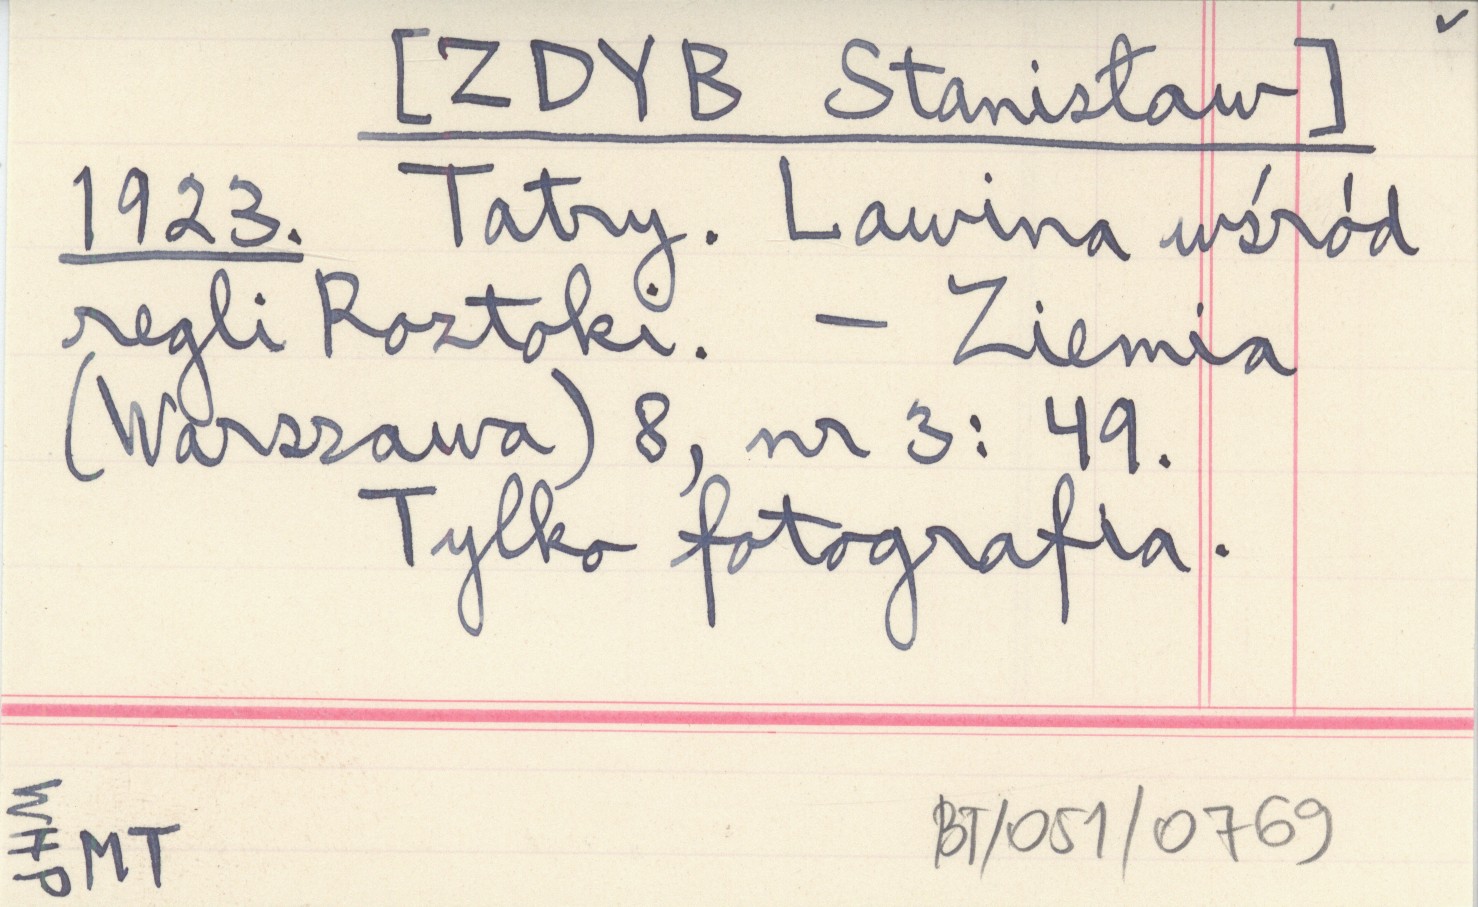 [ZDYB Stanisław]
1923. Tatry. Lawina wśród
regli Roztoki. – Ziemia
(Warszawa) 8, nr 3: 49.
Tylko fotografia.
WHP
MT
BT/051/0769